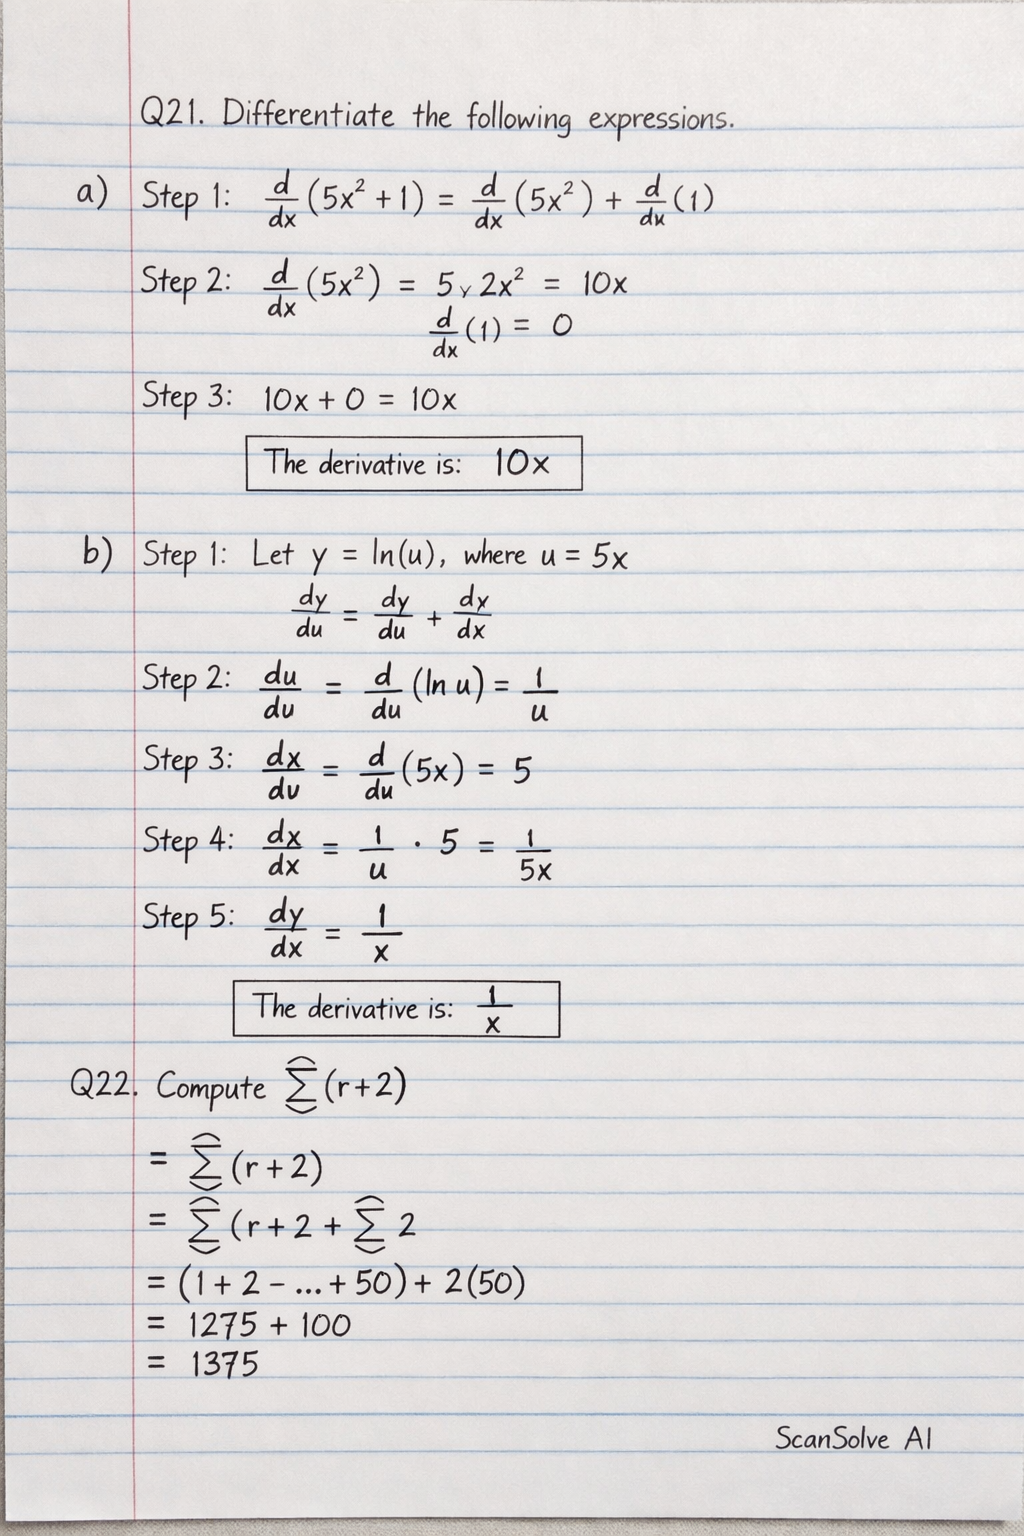 Q21. Differentiate the following expressions.
a) Step 1: d/dx (5x² + 1) = d/dx (5x²) + d/du (1)
Step 2: d/dx (5x²) = 5 ᵧ 2x² = 10x
d/dx (1) = 0
Step 3: 10x + 0 = 10x
The derivative is: 10x
b) Step 1: Let y = ln(u), where u = 5x
dy/du = dy/du + dx/dx
Step 2: du/du = d/du (ln u) = 1/u
Step 3: dx/du = d/du (5x) = 5
Step 4: dx/dx = 1/u · 5 = 1/5x
Step 5: dy/dx = 1/x
The derivative is: 1/x
Q22. Compute ∑(r+2)
= ∑(r+2)
= ∑(r+2 + ∑ 2
= (1+2 - ... + 50) + 2(50)
= 1275 + 100
= 1375
ScanSolve AI